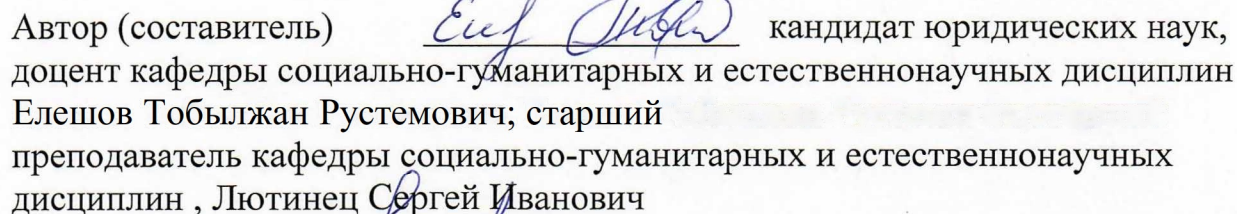 Автор (составитель) кандидат юридических наук,
доцент кафедры социально-гуманитарных и естественнонаучных дисциплин
Елешов Тобылжан Рустемович; старший
преподаватель кафедры социально-гуманитарных и естественнонаучных
дисциплин , Лютинец Сергей Иванович